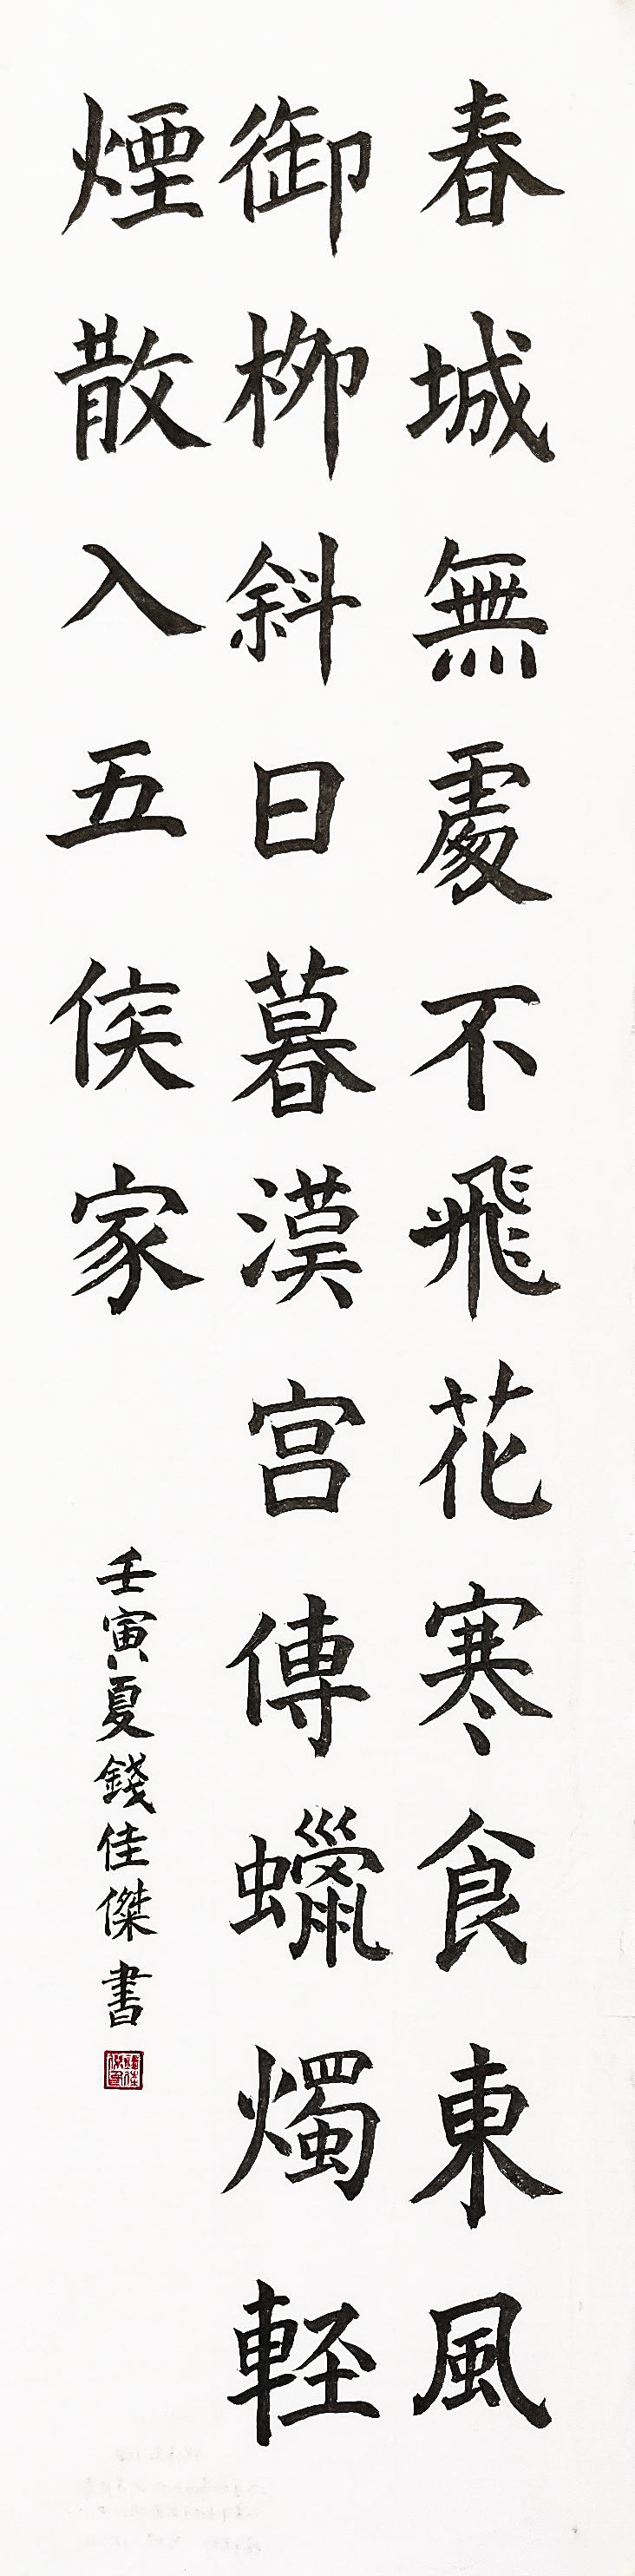 春城無處不飛花寒食東風
御柳斜日暮漢宮傳蠟燭輕
煙散入五侯家
壬寅夏錢佳傑書